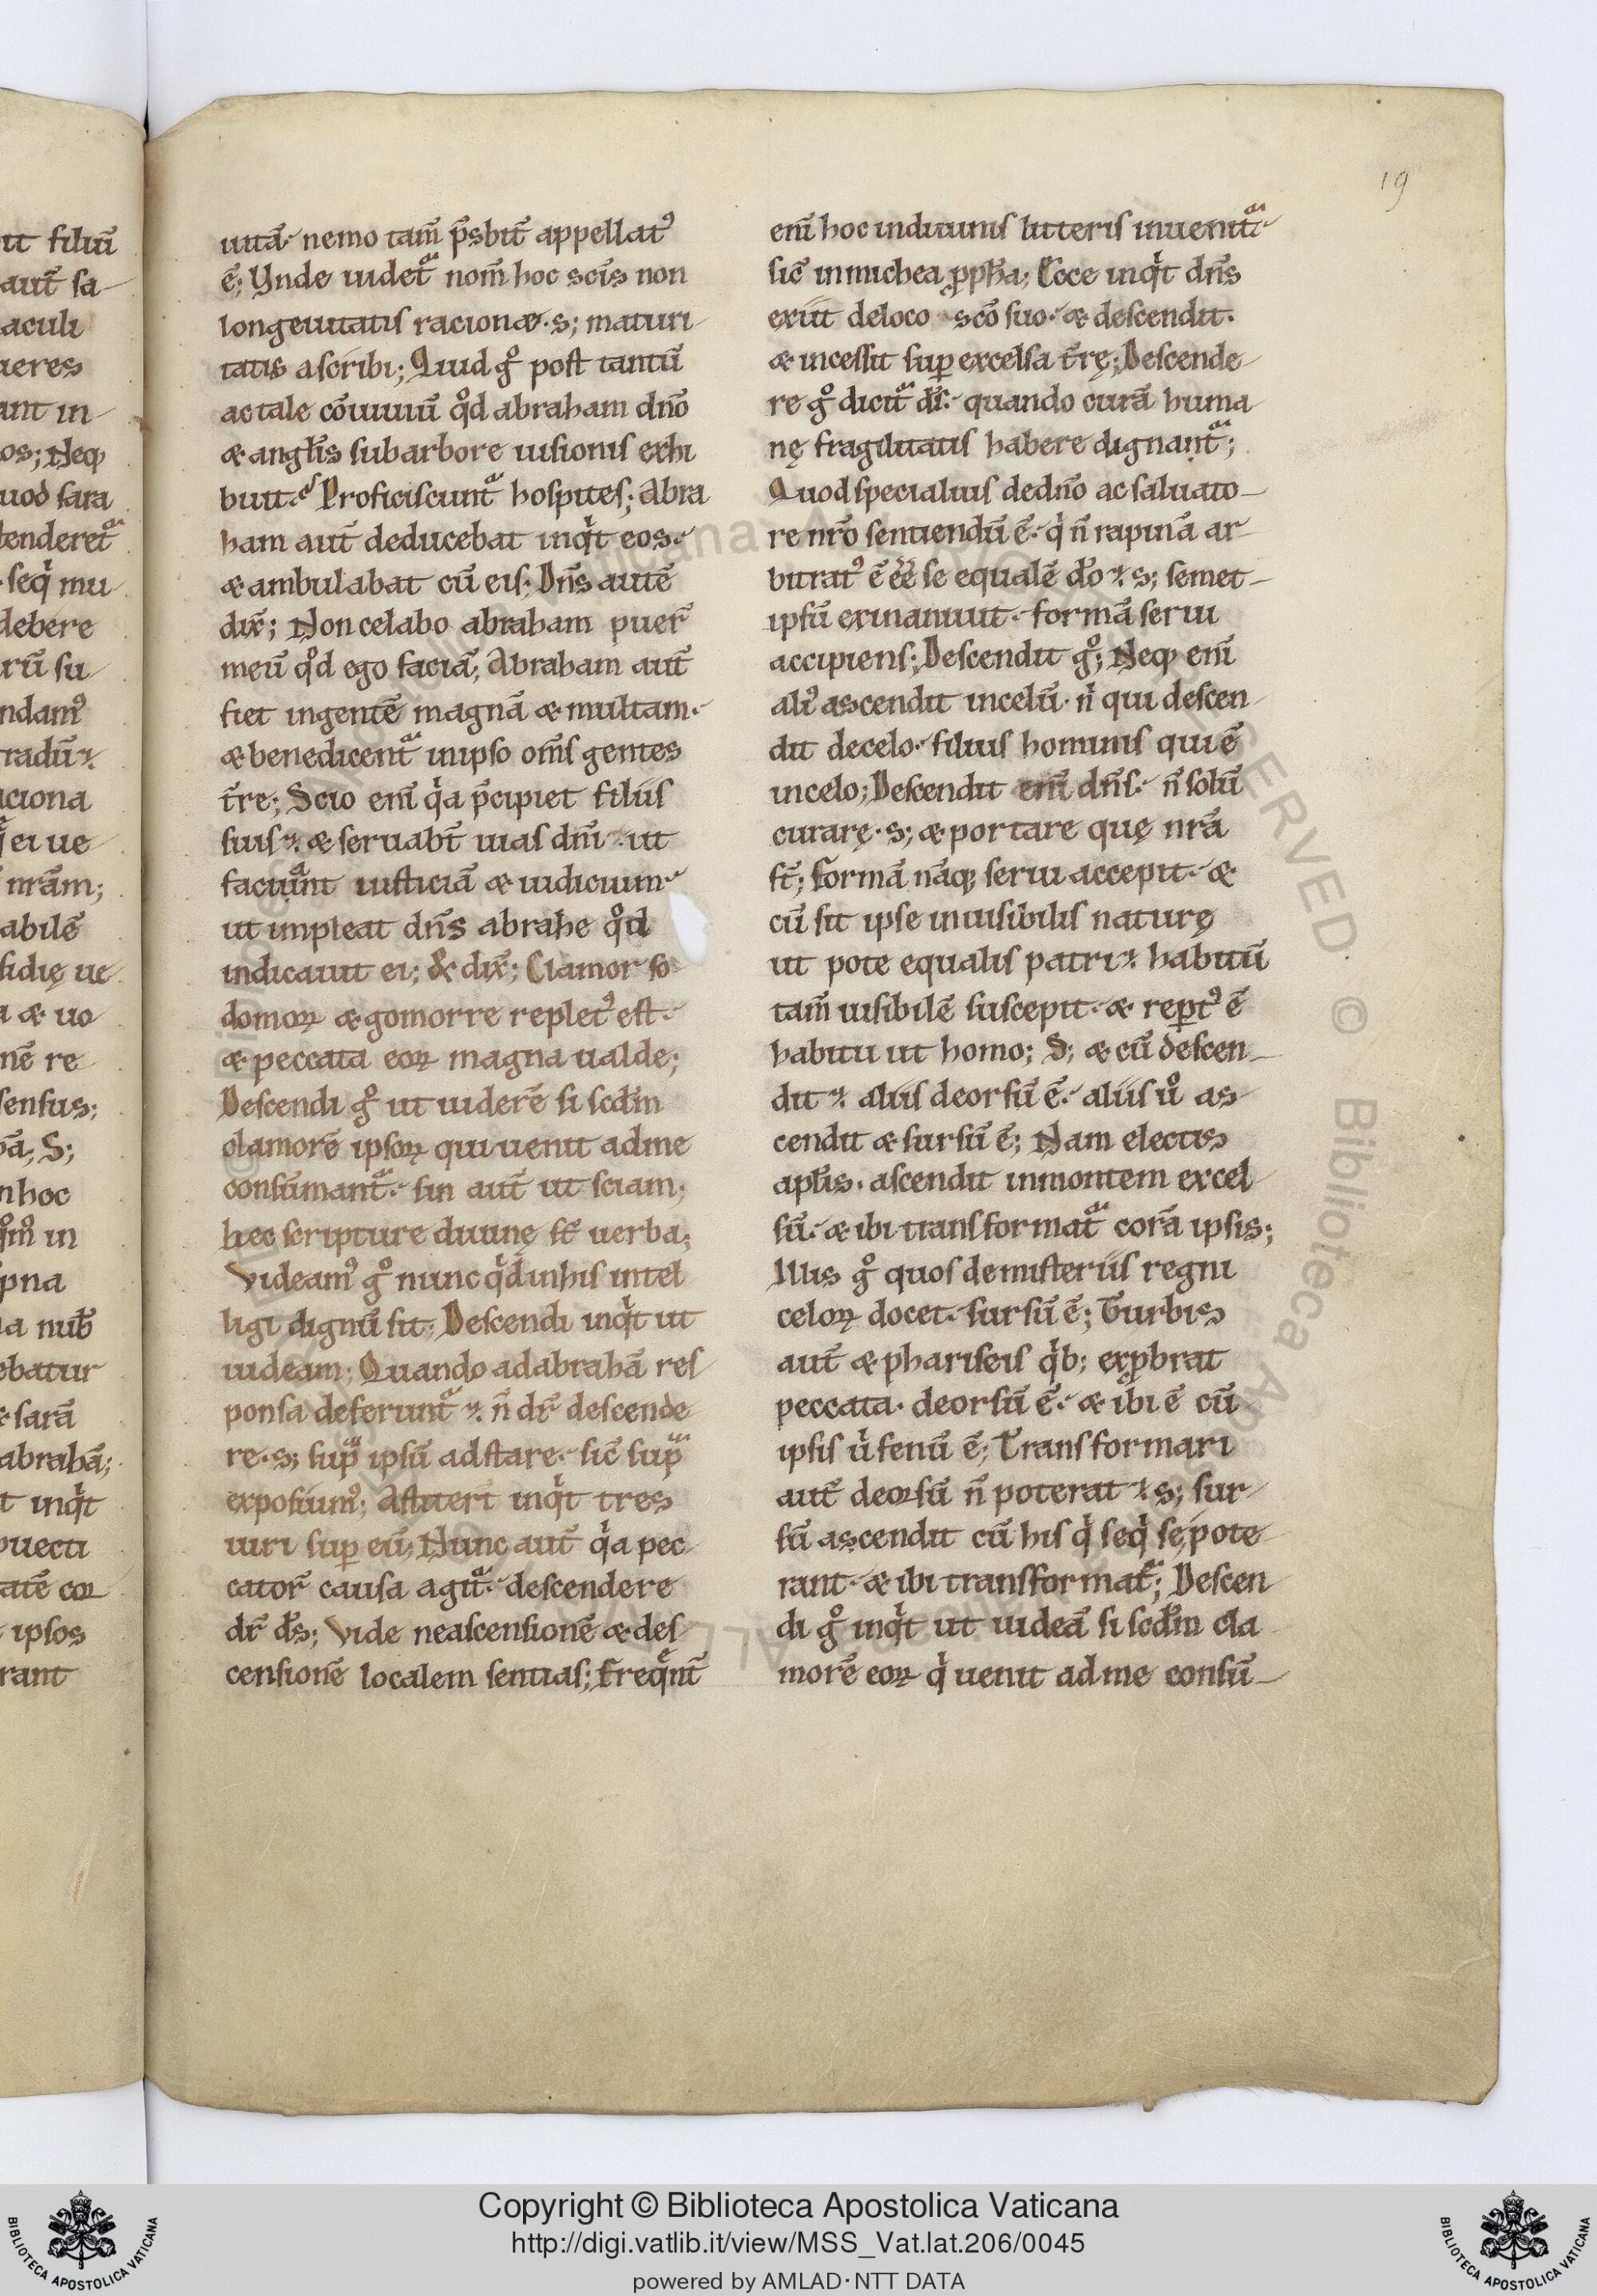 19
uitā. nemo tam̄ p̄sbit̄ appellatꝰ
ē; Vnde uidet̄ᵃ nom̄ hoc sc̄is non
longeuitatis racionæ. s; maturi
tatis ascribi; Quid gͦ post tantū
ac tale cōuiuiū qͦd abraham dn̄o
& angl̄is sub arbore uisionis exhi
buit. Proficiscunt̄ᵃ hospites; Abra
ham aut̄ deducebat inqⁱt eos.
& ambulabat cū eis; Dn̄s autē
dix̄; Non celabo abraham puer̄
meū qͦd ego faciā; Abraham aut̄
fiet ingentē magnā & multam.
& benedicent̄ᵃ in ipso om̄s gentes
t̄re; Scio enī qⁱa p̄cipiet filiis
suis. & seruab̄t uias dn̄i. ut
faciant iusticiā & iudicium.
ut impleat dn̄s abrahe qͦd
indicauit ei; & dix̄; Clamor so
domoꝝ & gomorre repletꝰ est.
& peccata eoꝝ magna ualde;
Descendi gͦ ut uiderē si scd̄m
clamorē ipsoꝝ qui uenit ad me
consūmant̄ᵃ. sin aut̄ ut sciam;
hec scripture diuinę st̄ uerba;
Videamꝰ gͦ nunc qⁱd in his intel
ligi dignū sit; Descendi inqⁱt ut
uideam; Quando ad abrahā res
ponsa deferunt̄ᵃ. n̄ dr̄ descende
re. s; supᵃ ipsū adstare. sic̄ supᵃ
exposuimꝰ; Astiteri inqⁱt tres
uiri suꝑ eū; Nunc aut̄ qⁱa pec
cator̄ causa agit̄ᵃ. descendere
dr̄ ds̄; Vide ne ascensionē & des
censionē localem sentias; freqͤnt̄
enī hoc in diuinis litteris inuenit̄ᵃ.
sic̄ in michea ꝓph̄a; Ecce inqⁱt dn̄s
exiit de loco sc̄o suo. & descendit.
& incessit suꝑ excelsa t̄rę; Descende
re gͦ dicit̄ᵃ ds̄. quando curā huma
nę fragilitatis habere dignant̄ᵃ;
Quod specialius de dn̄o ac saluato
re nr̄o sentiendū ē. qⁱ n̄ rapinā ar
bitratꝰ ē ēē se equalē dō. s; semet
ipsū exinaniuit. formā serui
accipiens; Descendit gͦ; Neqꝫ enī
aliꝰ ascendit in celū. nⁱ qui descen
dit de celo. filius hominis qui ē
in celo; Descendit enī dn̄s. n̄ solū
curare. s; & portare quę nr̄a
st̄; formā nāqꝫ serui accepit. &
cū sit ipse inuisibilis naturę
ut pote equalis patri. habitū
tam̄ uisibilē suscepit. & reꝑtꝰ ē
habitu ut homo; S; & cū descen
dit. aliis deorsū ē. aliis uͦ as
cendit & sursū ē; Nam electis
apl̄is. ascendit in montem excel
sū. & ibi transformat̄ᵃ corā ipsis;
Illis gͦ quos de misteriis regni
celoꝝ docet. sursū ē; Turbis
aut̄ & phariseis qⁱb; exꝓbrat
peccata. deorsū ē. & ibi ē cū
ipsis uⁱ fenū ē; Transformari
aut̄ deoꝛsū n̄ poterat. s; sur
sū ascendit cū his qⁱ seqⁱ se pote
rant. & ibi transformat̄ᵃ; Descen
di gͦ inqⁱt ut uideā si scd̄m cla
morē eoꝝ qⁱ uenit ad me consū
Copyright © Biblioteca Apostolica Vaticana
http://digi.vatlib.it/view/MSS_Vat.lat.206/0045
powered by AMLAD·NTT DATA
BIBLIOTECA APOSTOLICA VATICANA
BIBLIOTECA APOSTOLICA VATICANA